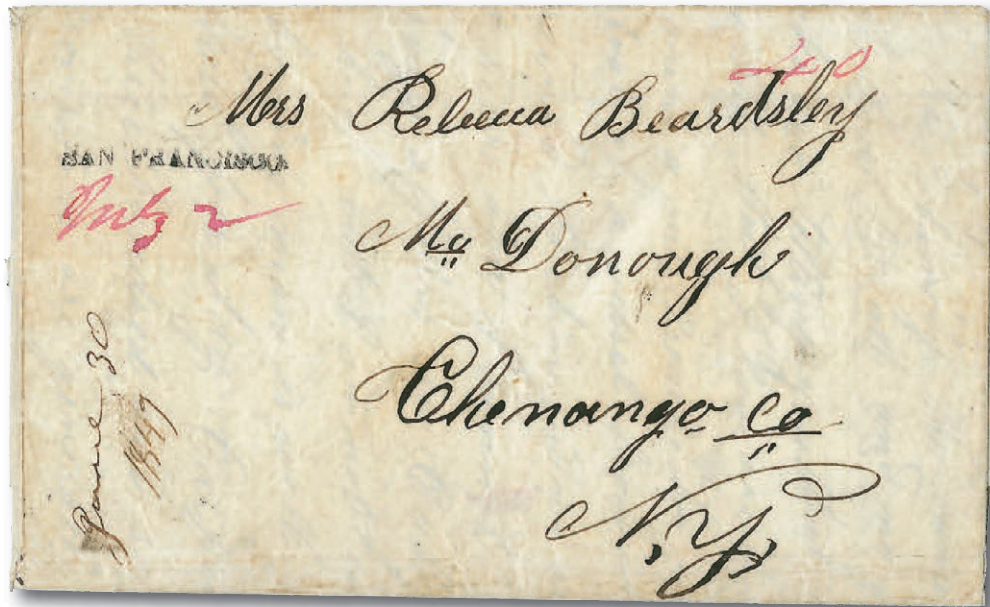 40
Mrs Rebecca Beardsley
SAN FRANCISCO
July 2
Mc Donough
Chenango co
N.Y.
June 30
1849